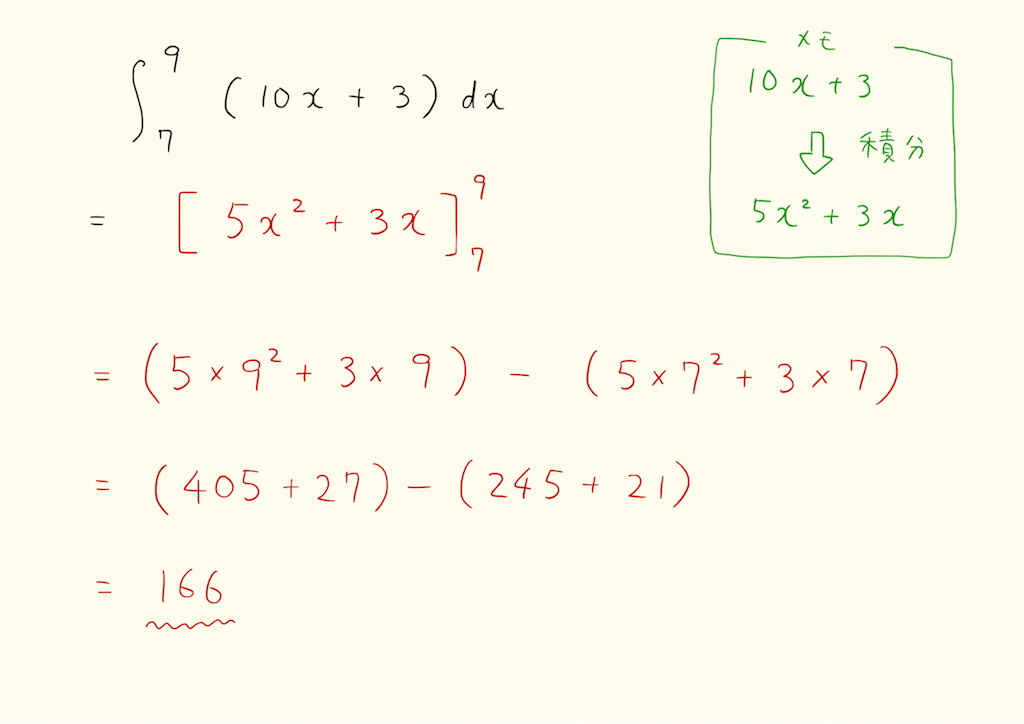 ∫₇⁹ (10x + 3) dx
= [5x² + 3x]₇⁹
= (5 × 9² + 3 × 9) - (5 × 7² + 3 × 7)
= (405 + 27) - (245 + 21)
= 166
メモ
10x + 3
⇩ 積分
5x² + 3x